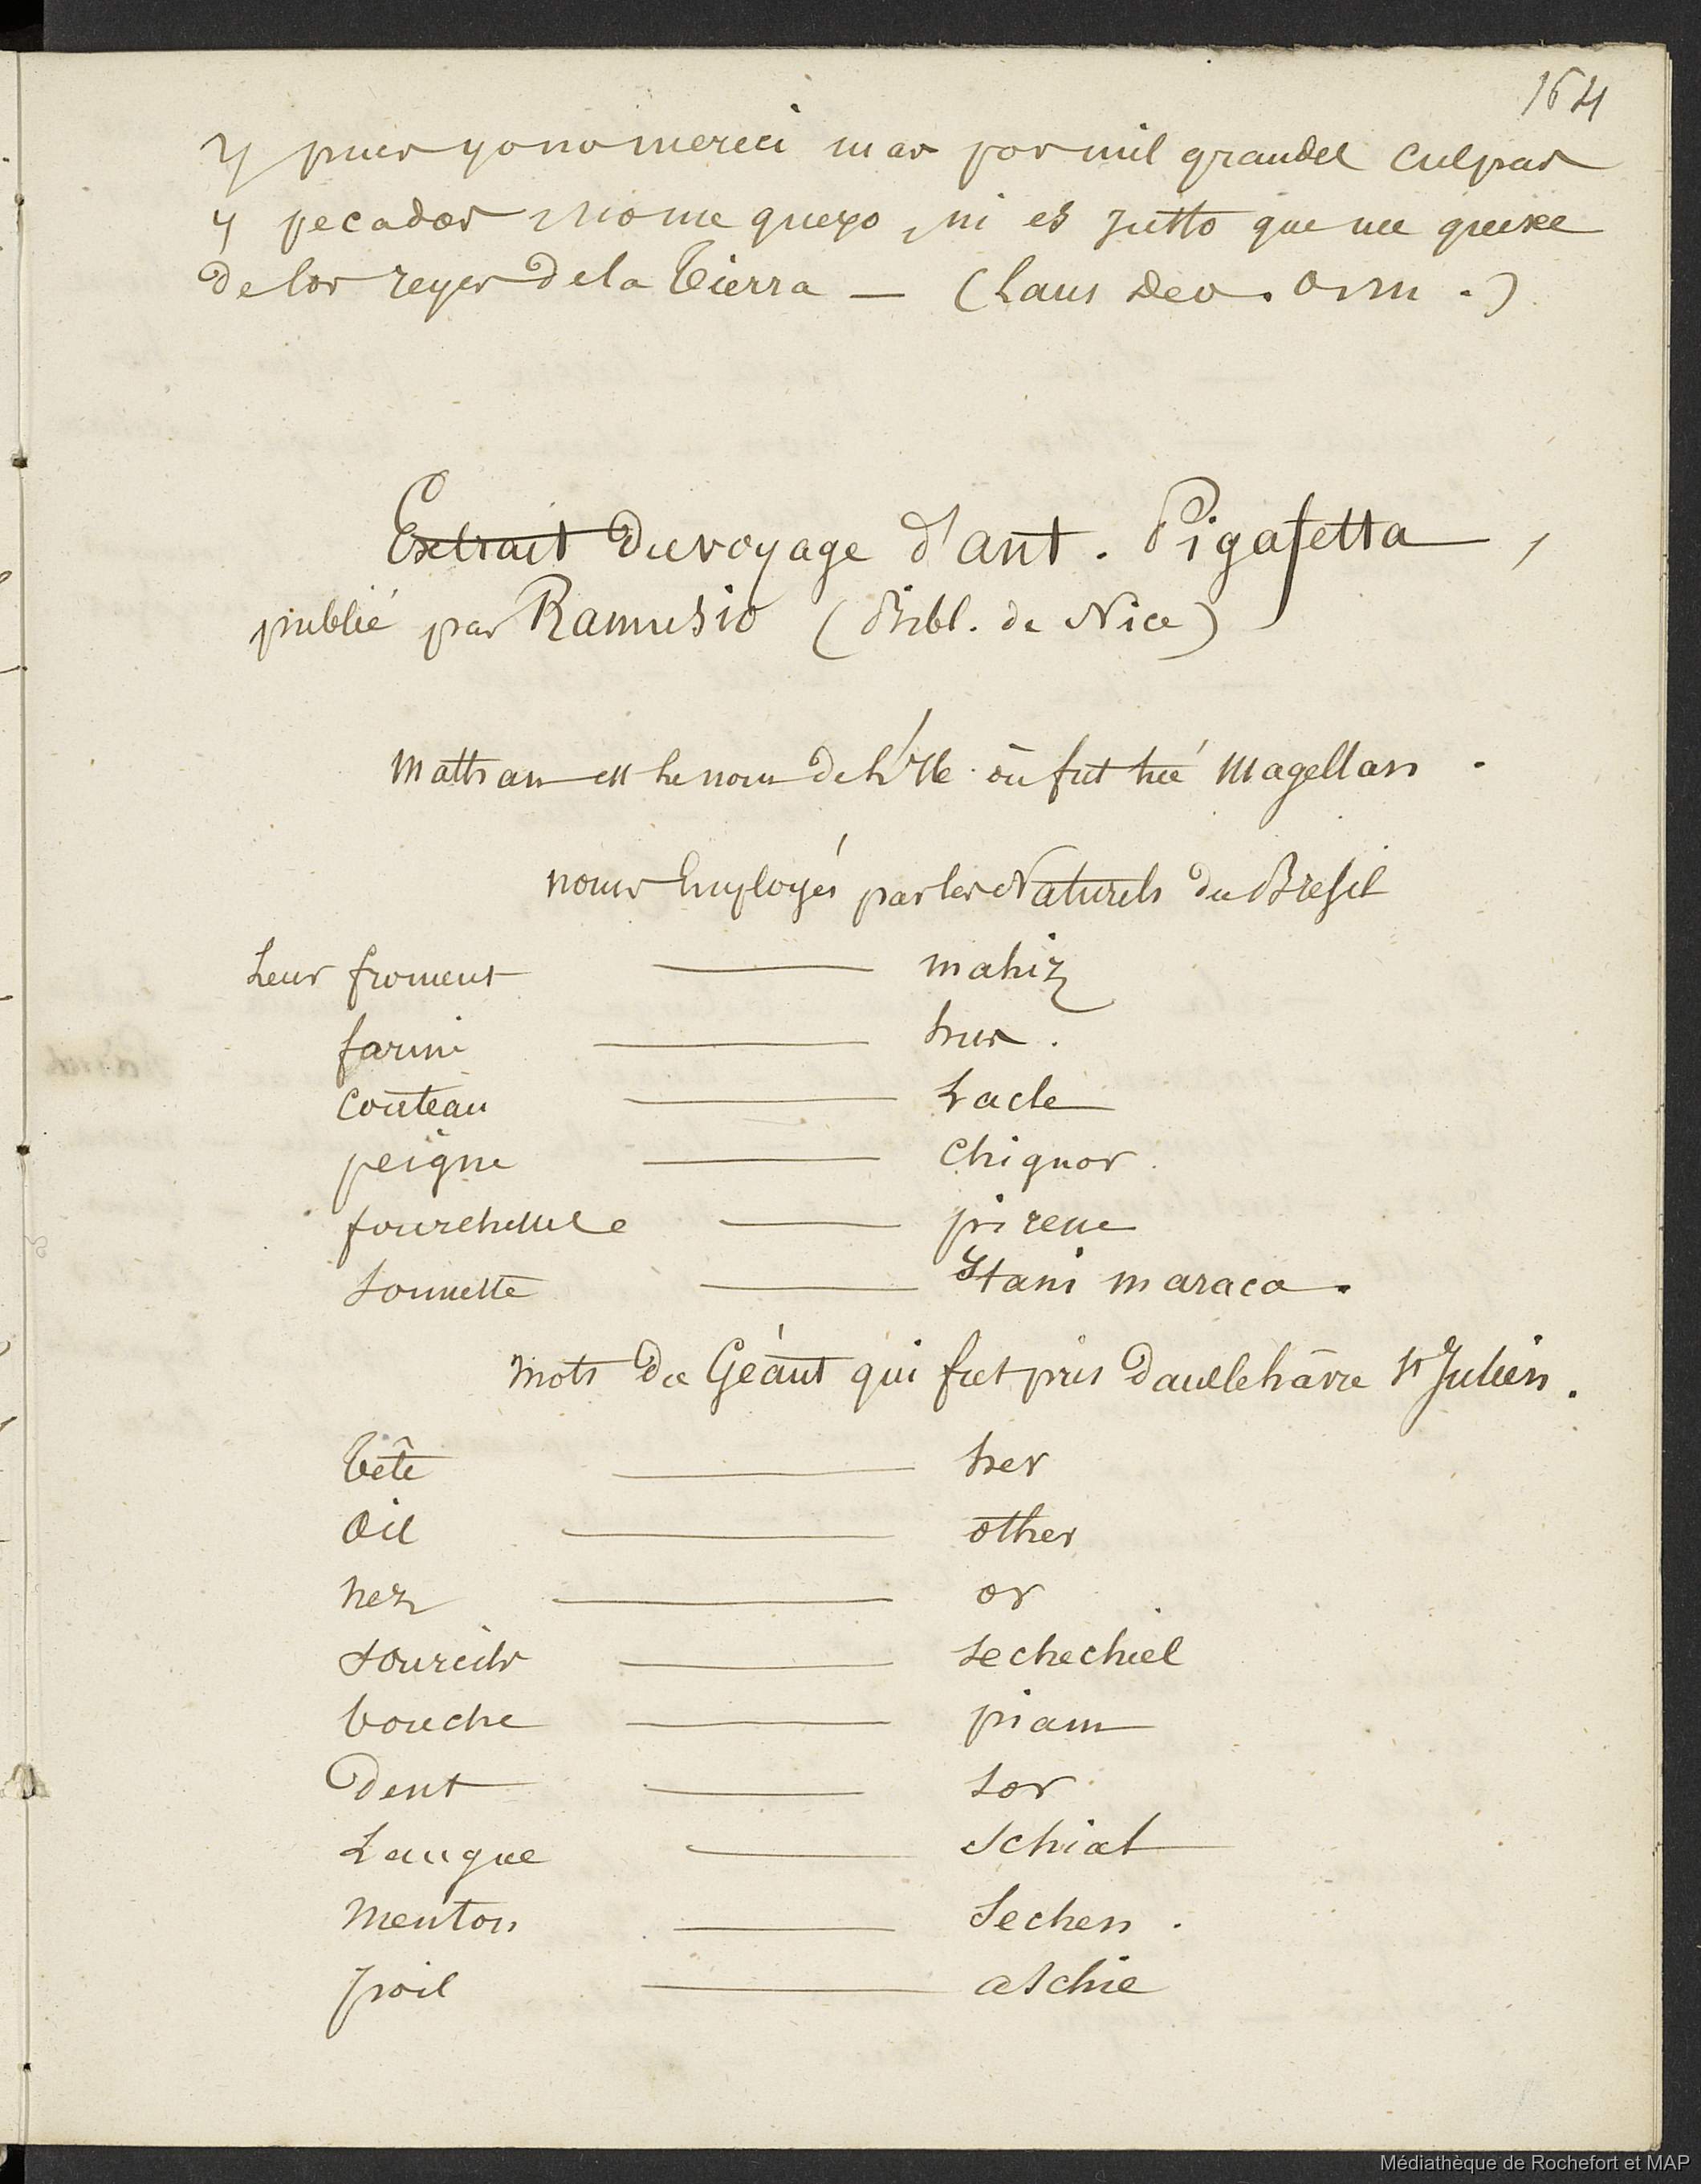 164
y pues yo no mereci mas por mil grandes culpas
y pecados no me quexo, ni es justo que me quexe
de los reyes de la tierra — (Laus deo. om.)
Extrait du voyage d'ant. Pigafetta,
publié par Ramusio (Bibl. de Nice)
Mathan est le nom de l'Ile où fut tué Magellan.
noms Employés par les Naturels du Bresil
Leur froment — mahiz
farine — hus.
Couteau — tacle
peigne — Chignor.
fourchette — pirene
Sonnette — Itani maraca.
Mots du Géant qui fut pris dans le hâvre St Julien.
tête — her
Œil — other
nez — or
sourcils — sechechiel
bouche — piam
Dent — sor
Langue — schial
Menton — Sechen.
poil — aschie
Médiathèque de Rochefort et MAP